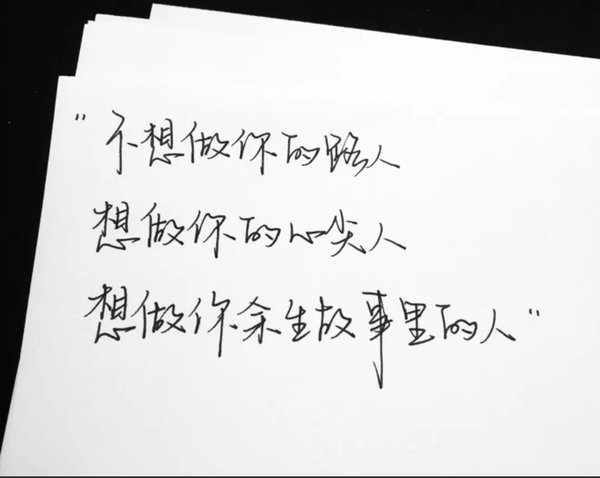 "不想做你的路人
想做你的心尖人
想做你余生故事里的人"